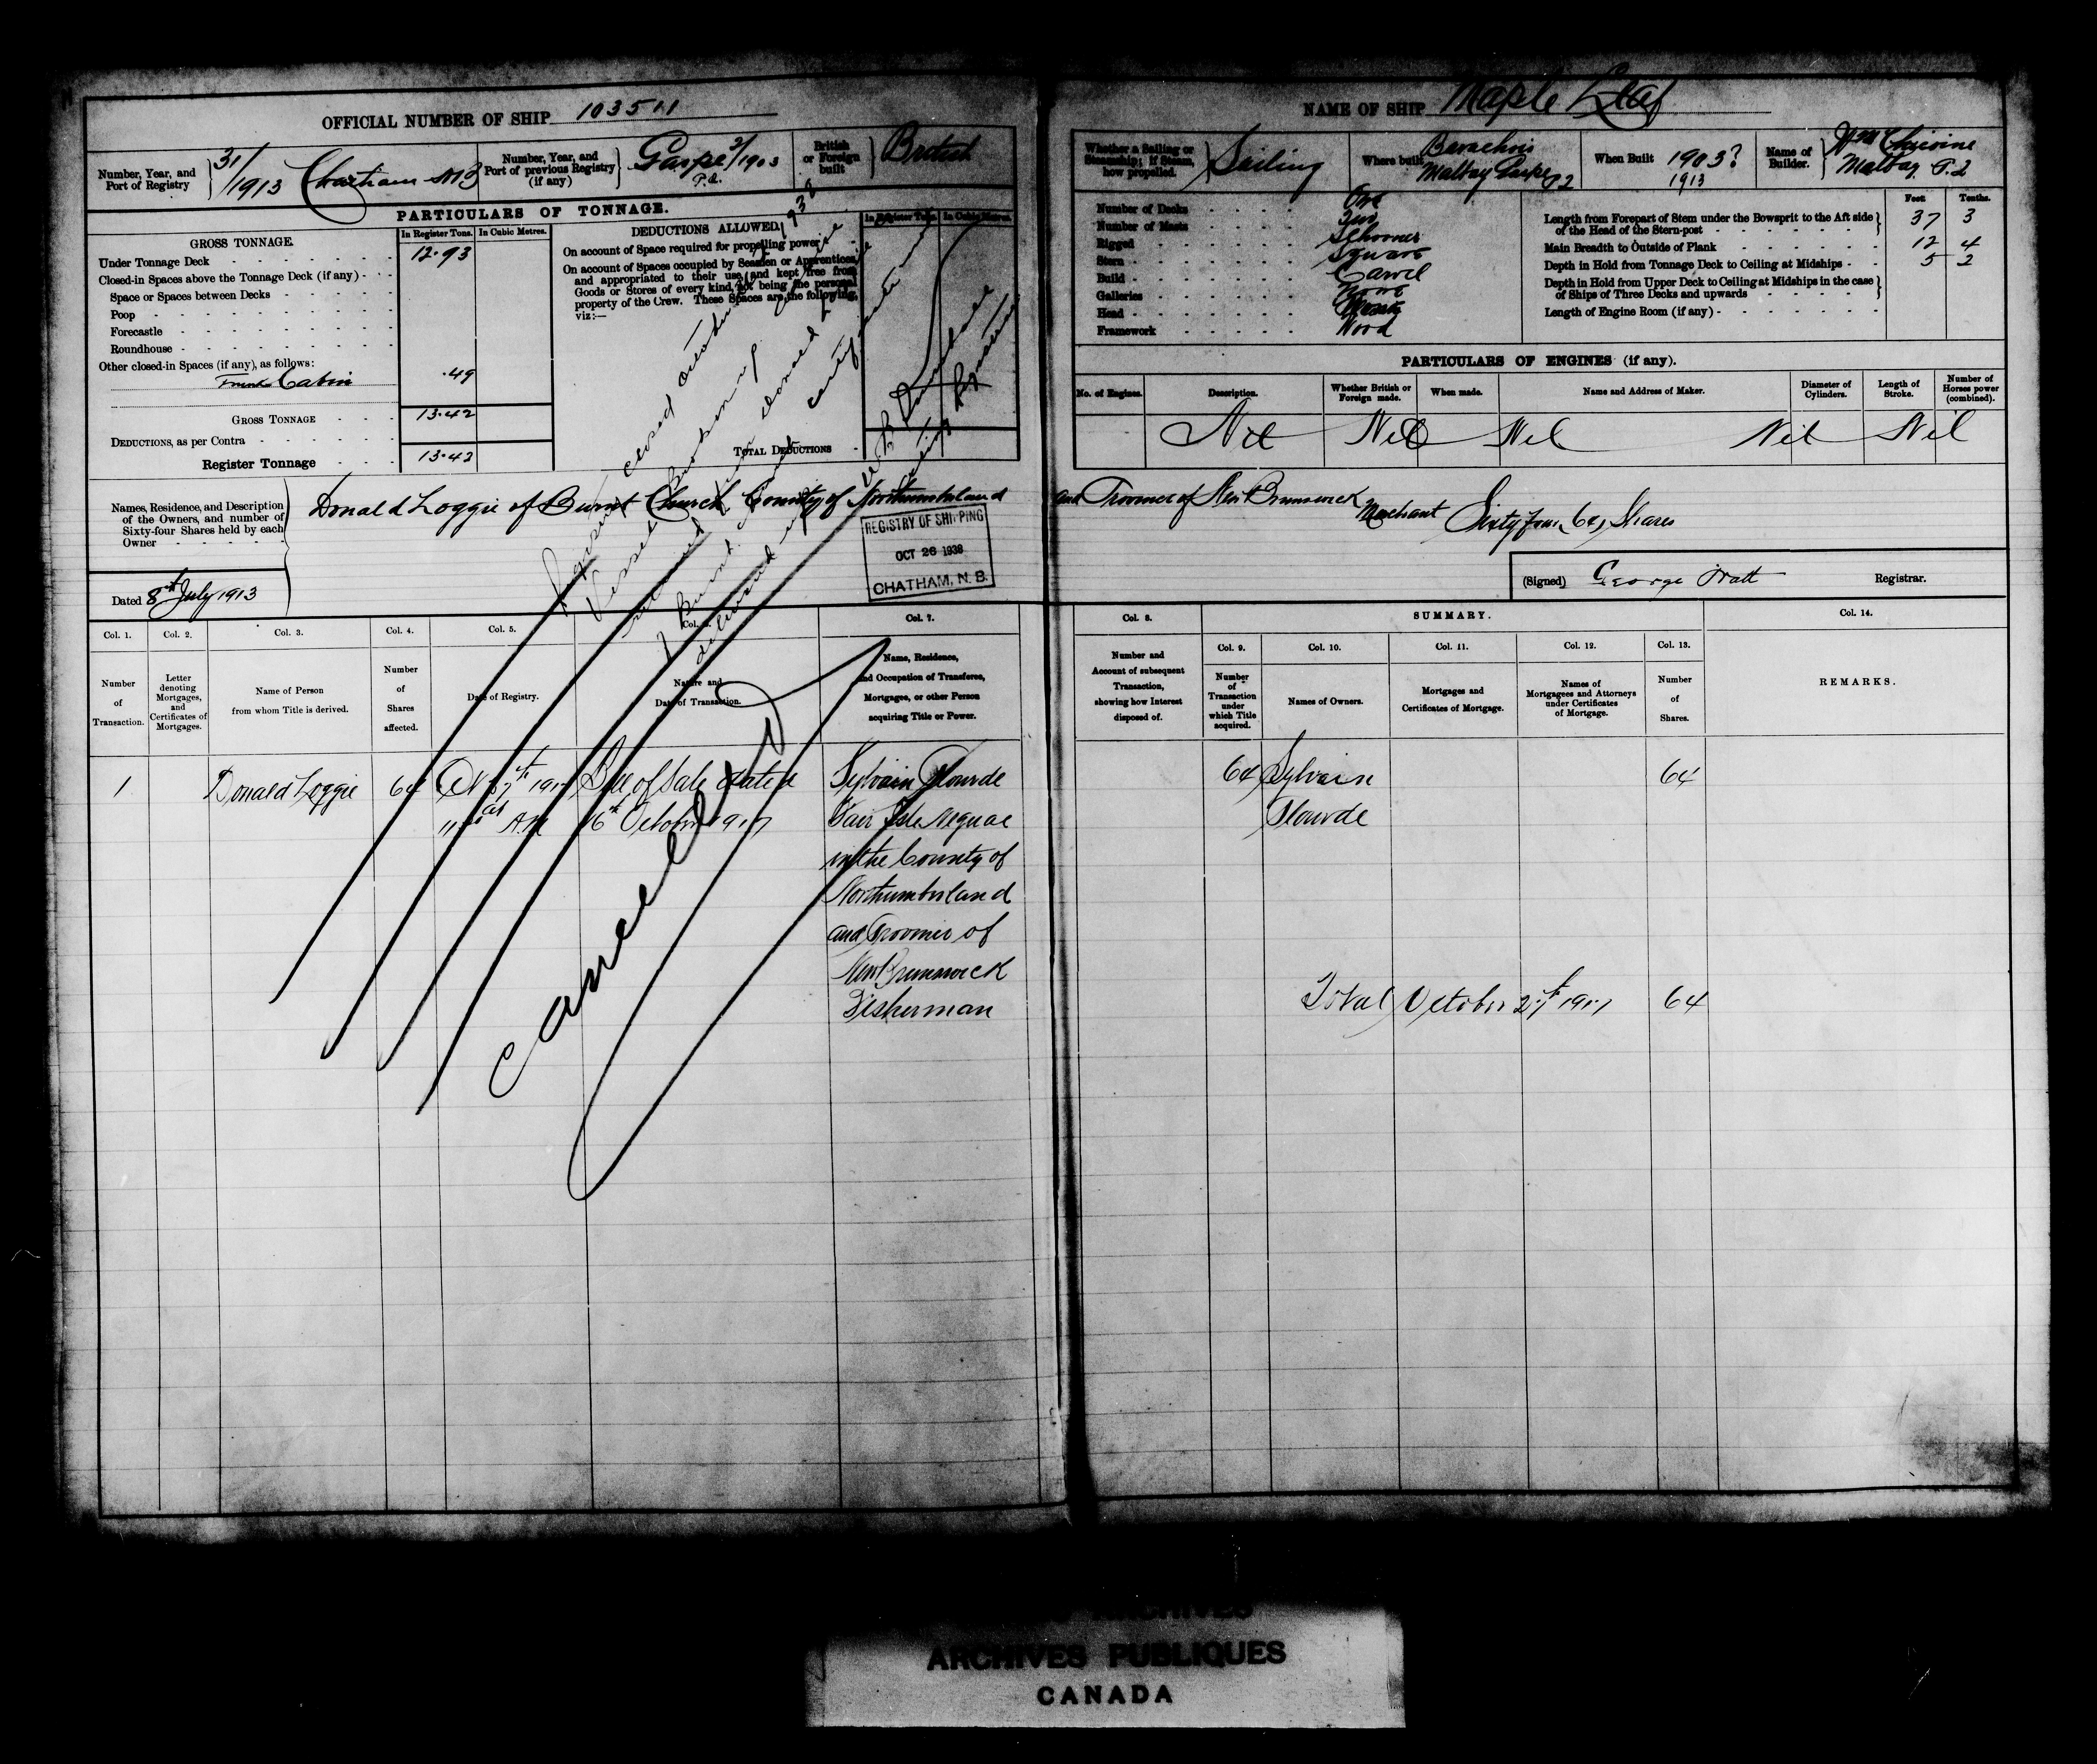 OFFICIAL NUMBER OF SHIP 103511
Number, Year, and Port of Registry
31/1913 Chatham NB
Number, Year, and Port of previous Registry (if any)
Gaspe 2/1903 P.Q.
British or Foreign built
British
PARTICULARS OF TONNAGE.
GROSS TONNAGE.
In Register Tons. In Cubic Metres.
Under Tonnage Deck 12.93
Closed-in Spaces above the Tonnage Deck (if any)
Space or Spaces between Decks
Poop
Forecastle
Roundhouse
Other closed-in Spaces (if any), as follows:
Trunk Cabin .49
GROSS TONNAGE 13.42
DEDUCTIONS, as per Contra
Register Tonnage 13.42
DEDUCTIONS ALLOWED.
In Register Tons. In Cubic Metres.
On account of Space required for propelling power
On account of Spaces occupied by Seamen or Apprentices,
and appropriated to their use, and kept free from
Goods or Stores of every kind, not being the personal
property of the Crew. These Spaces are the following,
viz:—
TOTAL DEDUCTIONS
Names, Residence, and Description
of the Owners, and number of
Sixty-four Shares held by each
Owner
Donald Loggie of Burnt Church County of Northumberland
Dated 8th July 1913
Register closed October
Vessel
Burnt
certificate
REGISTRY OF SHIPPING
OCT 26 1938
CHATHAM, N. B.
Col. 1. Col. 2. Col. 3. Col. 4. Col. 5. Col. 6. Col. 7.
Number of Transaction.
Letter denoting Mortgages, and Certificates of Mortgages.
Name of Person from whom Title is derived.
Number of Shares affected.
Date of Registry.
Nature and Date of Transaction.
Name, Residence, and Occupation of Transferee, Mortgagee, or other Person acquiring Title or Power.
1 Donald Loggie 64 Bill of Sale dated Sylvain Plourde
at A.M. 16th October 1917 Fair Isle Neguac
in the County of
Northumberland
and Province of
New Brunswick
Fisherman
Cancelled
NAME OF SHIP Maple Leaf
Whether a Sailing or Steamship; if Steam, how propelled.
Sailing
Where built
Barachois
Malbay Gaspe P2
When Built
1903?
1913
Name of Builder.
Wm
Malbay P.2
Number of Decks One
Number of Masts Two
Rigged Schooner
Stern Square
Build Carvel
Galleries None
Head
Framework Wood
Feet Tenths.
Length from Forepart of Stem under the Bowsprit to the Aft side of the Head of the Stern-post 37 3
Main Breadth to Outside of Plank 12 4
Depth in Hold from Tonnage Deck to Ceiling at Midships 5 2
Depth in Hold from Upper Deck to Ceiling at Midships in the case of Ships of Three Decks and upwards
Length of Engine Room (if any)
PARTICULARS OF ENGINES (if any).
No. of Engines. Description. Whether British or Foreign made. When made. Name and Address of Maker. Diameter of Cylinders. Length of Stroke. Number of Horses power (combined).
Nil Nil Nil Nil Nil
and Province of New Brunswick Merchant Sixty four 64 Shares
(Signed) George Watt Registrar.
Col. 8. SUMMARY. Col. 14.
Col. 9. Col. 10. Col. 11. Col. 12. Col. 13.
Number and Account of subsequent Transaction, showing how Interest disposed of.
Number of Transaction under which Title acquired.
Names of Owners.
Mortgages and Certificates of Mortgage.
Names of Mortgagees and Attorneys under Certificates of Mortgage.
Number of Shares.
REMARKS.
64 Sylvain 64
Plourde
Total October 27th 1917 64
ARCHIVES PUBLIQUES
CANADA